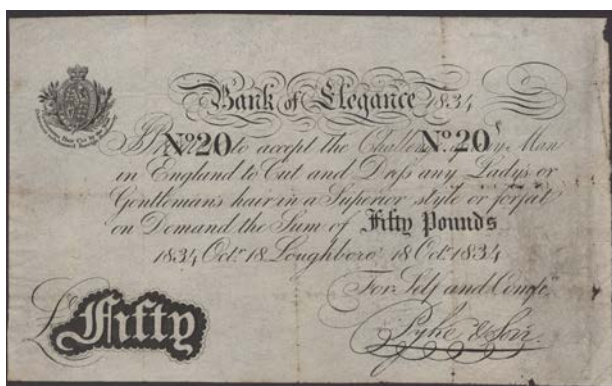 Bank of Elegance 1834
No. 20 No. 20
to accept the Challenge of any Man
in England to Cut and Dress any Lady's or
Gentleman's hair in a Superior style or forfeit
on Demand the Sum of Fifty Pounds
1834 Octr. 18 Loughboro' 18 Octr. 1834
For Self and Compy.
Pyke & Son
£ Fifty